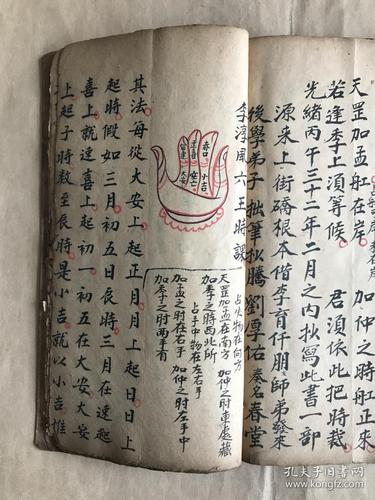 天罡加孟船在岸 加仲之時船正來
若逢季上須等候 君須依此把時裁
光緒丙午三十二年二月之內抄寫此書一部
源來上街磡根本借李育仟朋師弟發來
後學弟子 拙筆抄騰 劉厚佑 奏名春堂
李淳風六壬時課
赤口
小吉
速喜
空亡
留連
大安
占伙物在何方
天罡加孟在南方 加仲之时東處藏
加季之時西北所
占手中物在左右手
加孟之时在右手 加仲之时左手中
加季之时两手有
其法每從大安上起正月月上起日日上
起時假如三月初五日辰時三月在速
喜上就速喜上起初一初五在大安大安
上起子時数至辰時是小吉就以小吉推
孔夫子旧书网